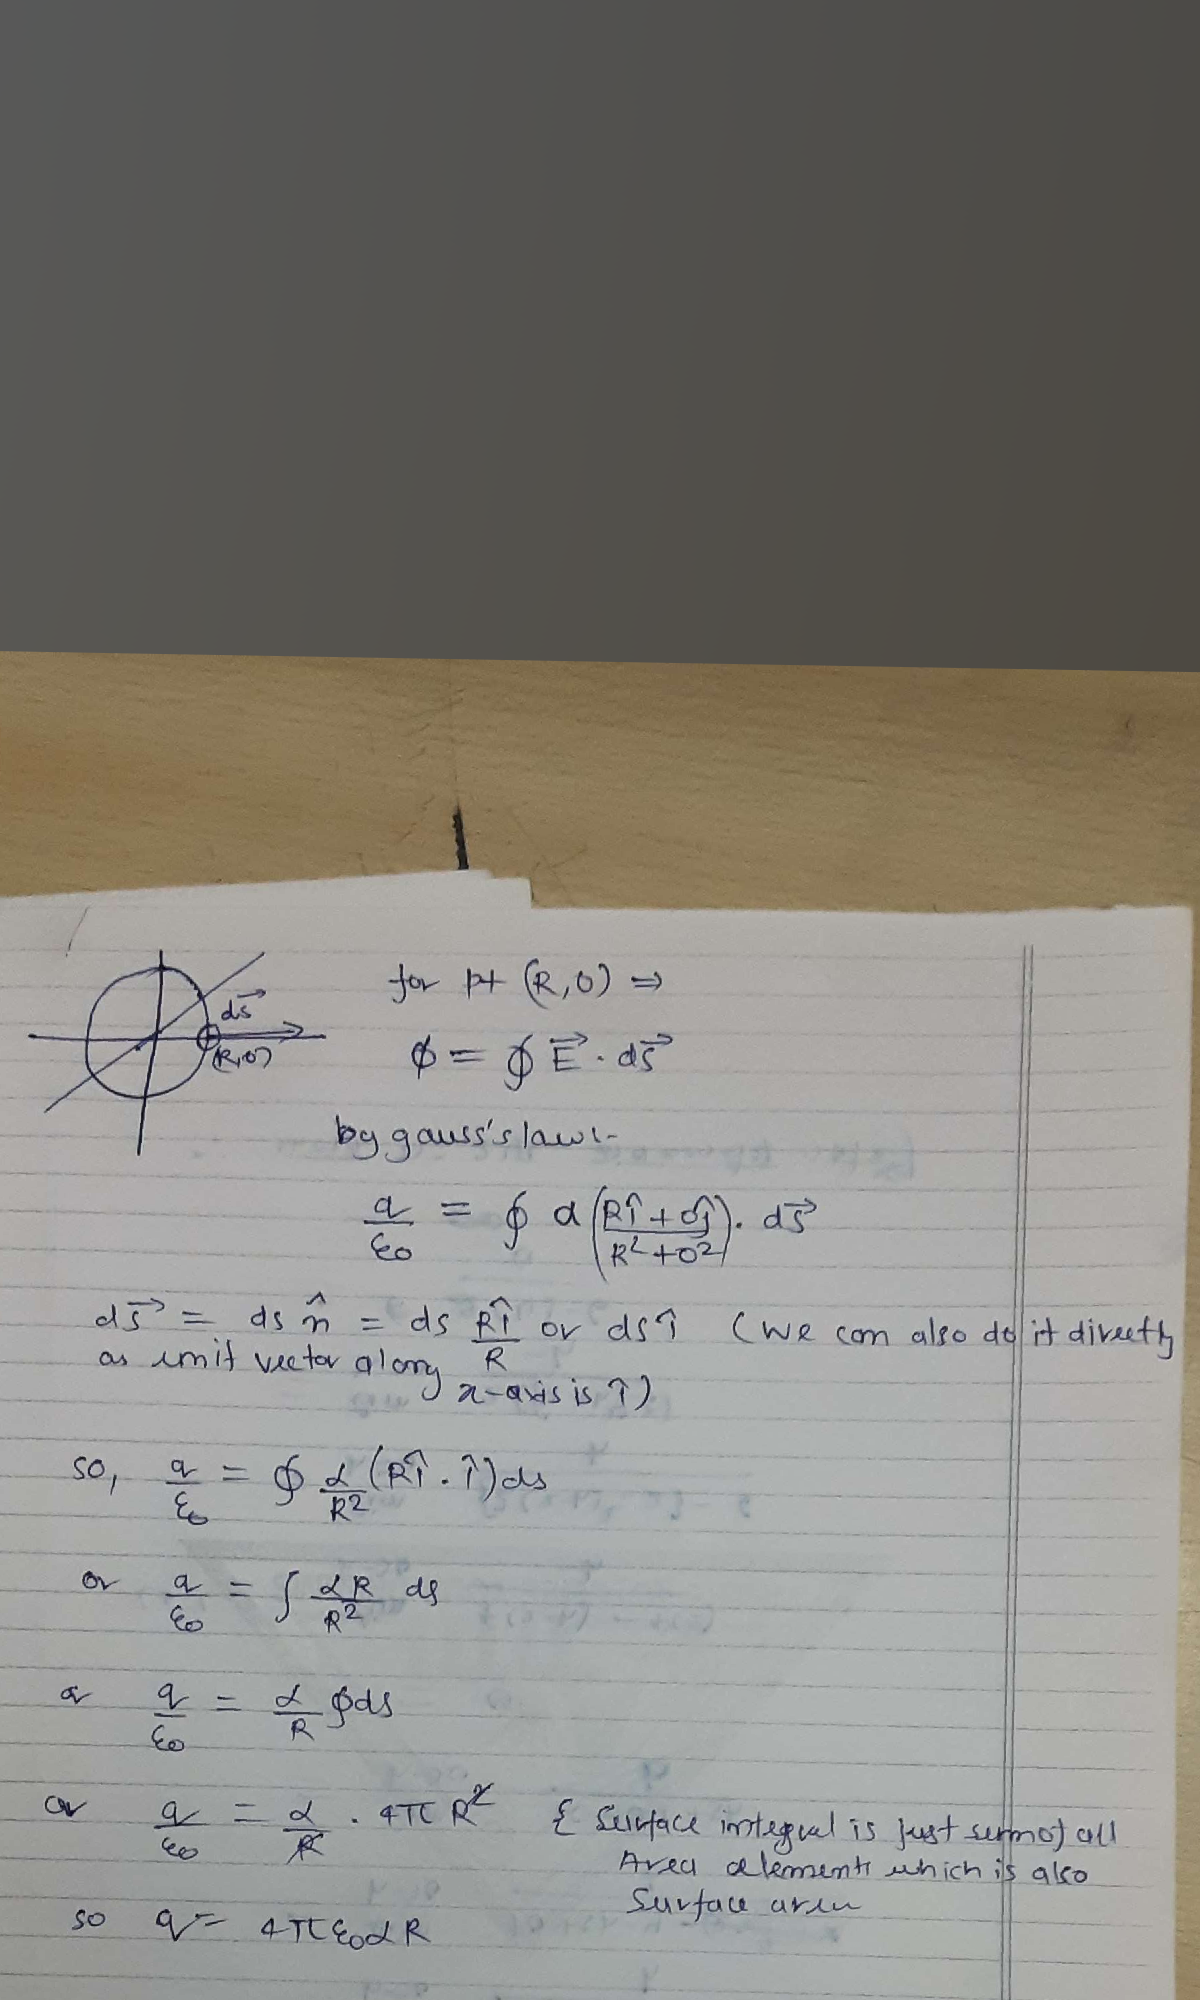 for pt (R,0) ⇒
ds⃗
(R,0)
ϕ = ∮ E⃗ . ds⃗
by gauss's law:-
q/ε0 = ∮ α (Rî + 0ĵ / R² + 0²) . ds⃗
ds⃗ = ds n̂ = ds Rî/R or ds î (we can also do it directly
as unit vector along
x-axis is î)
so, q/ε0 = ∮ α/R² (Rî . î) ds
or q/ε0 = ∫ αR/R² ds
or q/ε0 = α/R ∮ds
or q/ε0 = α/R . 4π R² { Surface integral is just sum of all
Area elements which is also
Surface area
so q = 4πε0αR